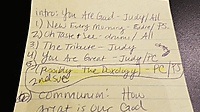 Intro: You Are Good - Judy/All
1) New Every Morning - Pedro/PS
2) Oh Taste + See - drums/All
3) The Tribute - Judy
4) You Are Great - Judy/PC
5) (Reading The Doxology) - PC/PS
2nd SVC
Communion: How
Great is our God